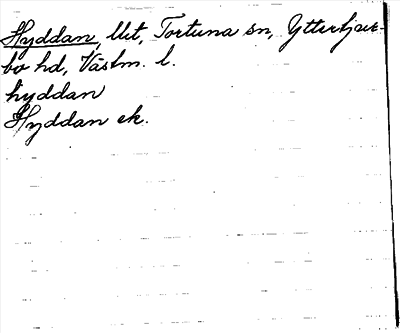 Hyddan, llet, Tortuna sn, Yttertjur-
bo hd, Västm. l.
hyddan
Hyddan ek.